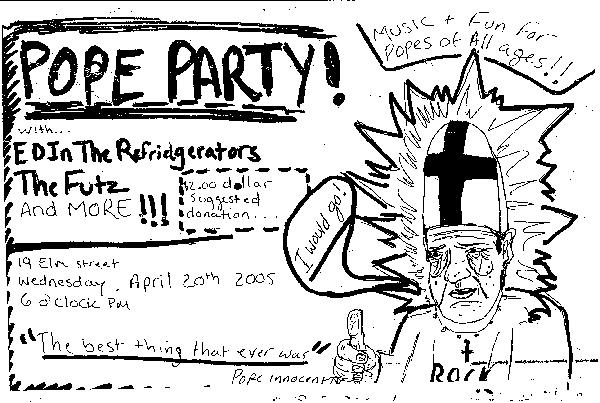 Music + Fun for
Popes of All ages!!
POPE PARTY!
with...
EDIn The Refridgerators
The Futz
And MORE !!!
$2.00 dollar
Suggested
donation....
I would go!
19 Elm street
Wednesday, April 20th 2005
6 o'clock PM
"The best thing that ever was"
Pope Innocent
Rock